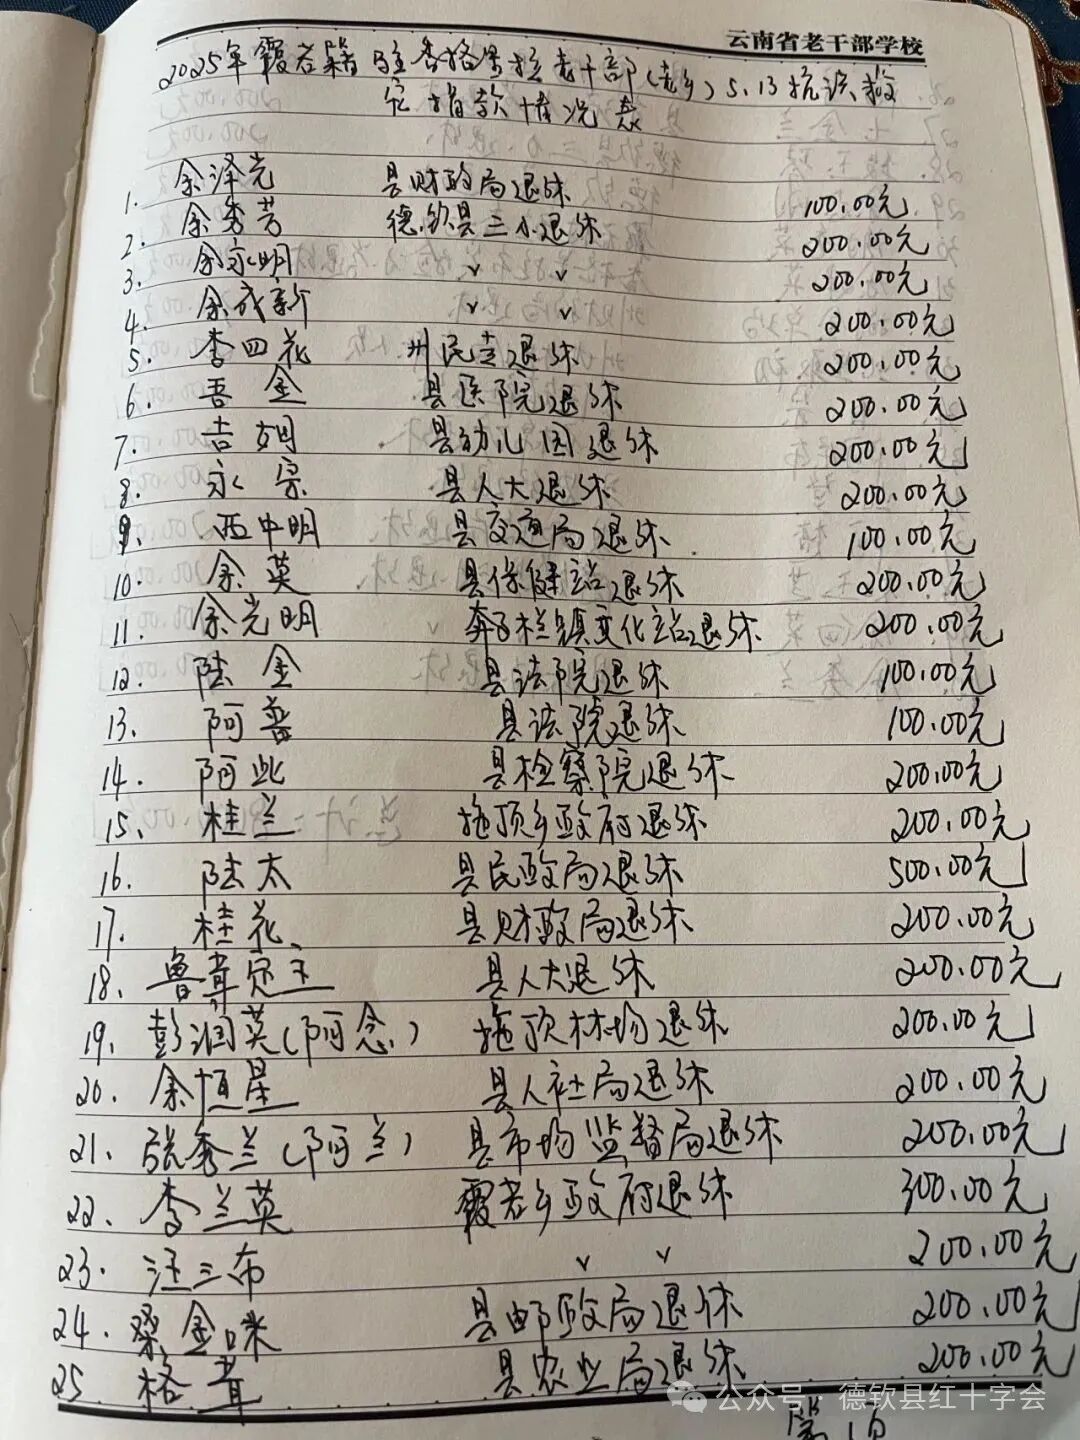 云南省老干部学校
2025年霞若籍驻香格里拉老干部(老乡)5.13抗洪救
灾捐款情况表
1. 余泽光 县财政局退休 100.00元
2. 余秀芳 德钦县三小退休 200.00元
3. 余永明 〃 〃 200.00元
4. 余成新 〃 〃 200.00元
5. 李四花 州民宗退休 200.00元
6. 吾金 县医院退休 200.00元
7. 吉姆 县幼儿园退休 200.00元
8. 永宗 县人大退休 200.00元
9. 西中明 县交通局退休 100.00元
10. 余英 县保健站退休 200.00元
11. 余光明 奔子栏镇文化站退休 200.00元
12. 陆金 县法院退休 100.00元
13. 阿普 县法院退休 100.00元
14. 阿此 县检察院退休 200.00元
15、 桂兰 拖顶乡政府退休 200.00元
16. 陆太 县民政局退休 500.00元
17. 桂花 县财政局退休 200.00元
18、 鲁茸定主 县人大退休 200.00元
19、 彭润英(阿念) 拖顶林场退休 200.00元
20. 余恒星 县人社局退休 200.00元
21. 张秀兰(阿兰) 县市场监督局退休 200.00元
22. 李兰英 霞若乡政府退休 300.00元
23. 汪三布 〃 〃 200.00元
24. 桑金咪 县邮政局退休 200.00元
25 格茸 县农业局退休 200.00元
公众号 德钦县红十字会
第1页